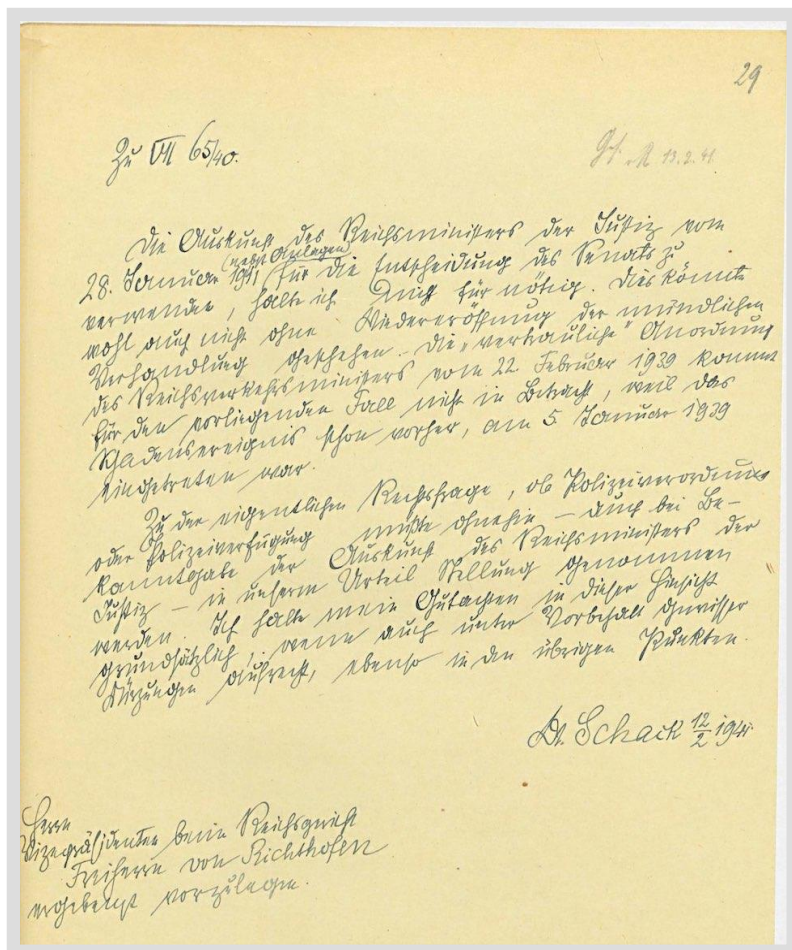 29
Zu VII 65/40.
Gs. R 13.2.41.
Die Auskunft des Reichsministers der Justiz vom
28. Januar 1941 (nebst Anlagen) für die Entscheidung des Senats zu
verwenden, halte ich nicht für nötig. Dies könnte
wohl auch nicht ohne Wiedereröffnung der mündlichen
Verhandlung geschehen. Die „vertrauliche" Anordnung
des Reichsverkehrsministers vom 22. Februar 1939 kommt
für den vorliegenden Fall nicht in Betracht, weil das
Schadensereignis schon vorher, am 5. Januar 1939
eingetreten war.
Zu der eigentlichen Rechtsfrage, ob Polizeiverordnung
oder Polizeiverfügung müßte ohnehin – auch bei Be-
kanntgabe der Auskunft des Reichsministers der
Justiz – in unserm Urteil Stellung genommen
werden. Ich halte mein Gutachten in dieser Hinsicht
grundsätzlich, wenn auch unter Vorbehalt gewisser
Kürzungen aufrecht, ebenso in den übrigen Punkten.
Dr. Schack 12/2 1941.
Herrn
Vizepräsidenten beim Reichsgericht
Freiherrn von Richthofen
ergebenst vorzulegen.